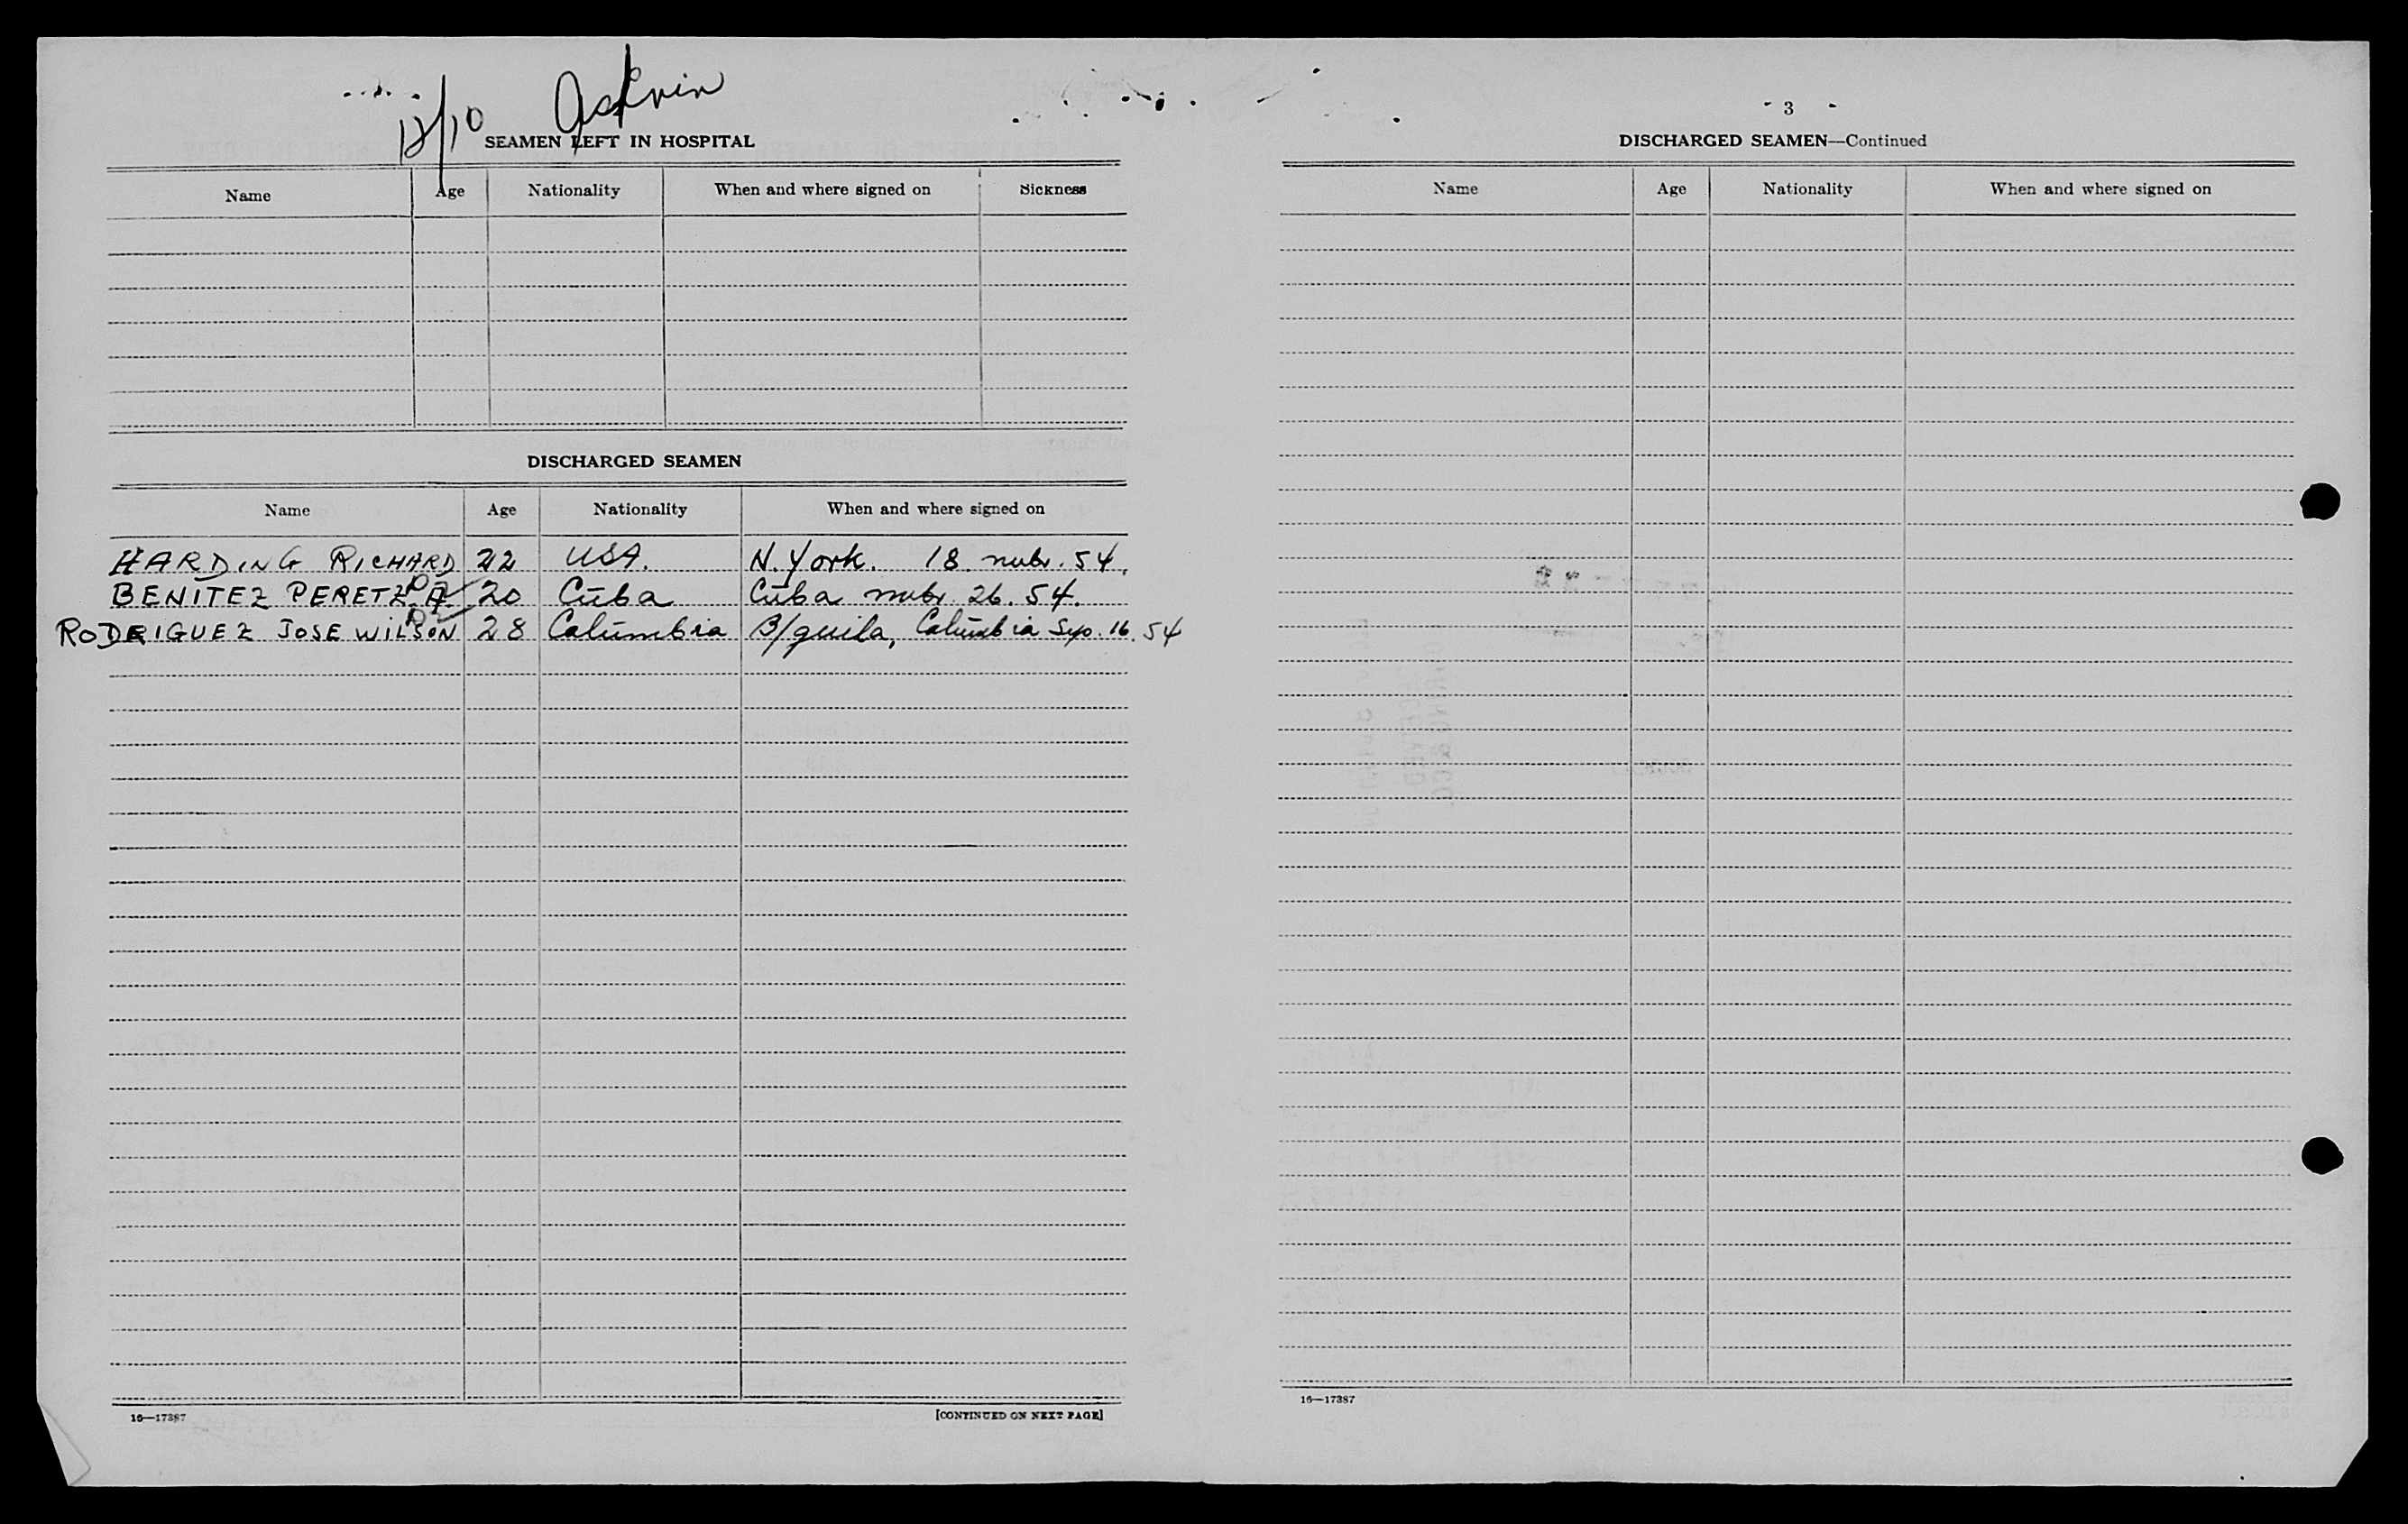 12/10
SEAMEN LEFT IN HOSPITAL
Name Age Nationality When and where signed on Sickness
DISCHARGED SEAMEN
Name Age Nationality When and where signed on
HARDING RICHARD 22 USA. N. York. 18. nvbr. 54.
BENITEZ PERETZ. A. 20 Cuba Cuba nvbr 26. 54.
RODRIGUEZ JOSE WILSON 28 Columbia B/quila, Columbia Sep. 16. 54
16—17387 [CONTINUED ON NEXT PAGE]
3
DISCHARGED SEAMEN—Continued
Name Age Nationality When and where signed on
16—17387